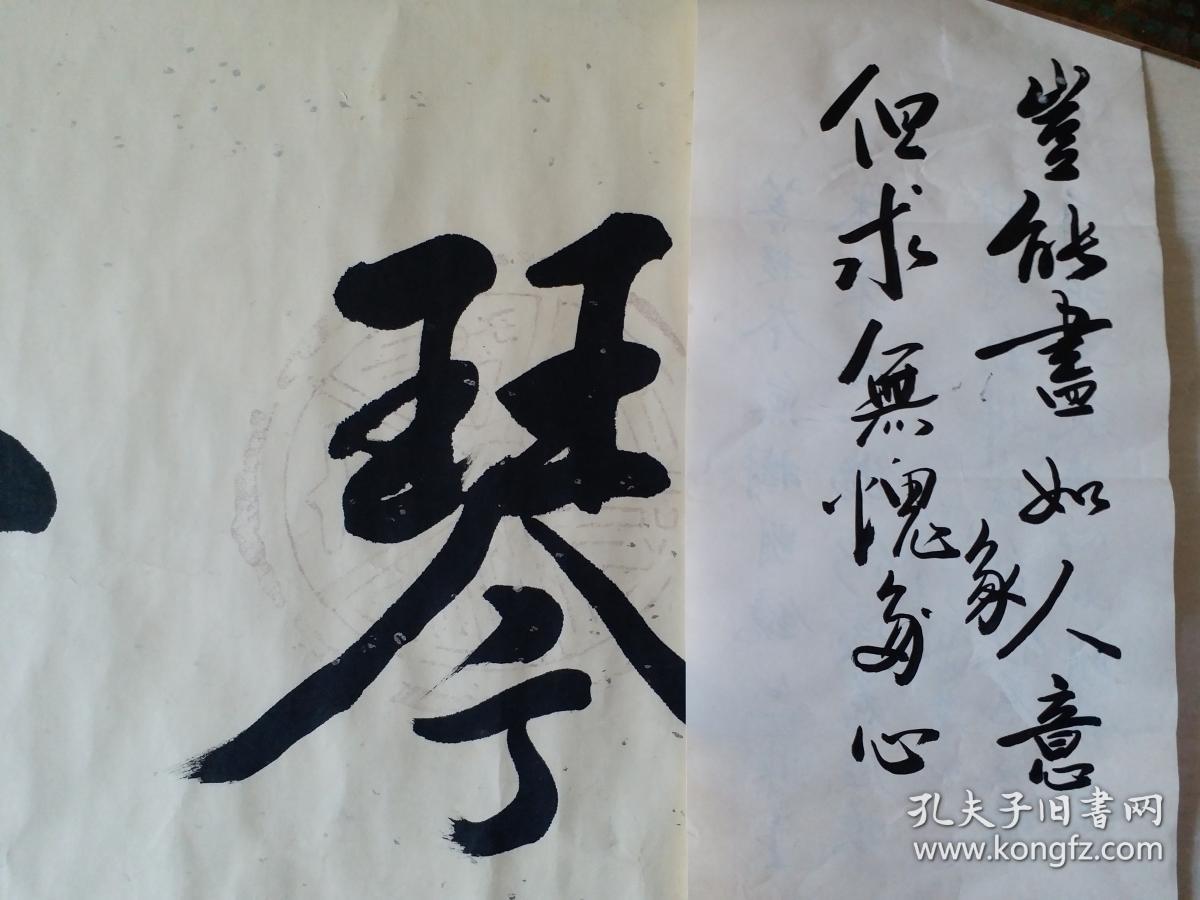 豈能盡如人意
但求無愧心
琴
孔夫子旧書网
www.kongfz.com